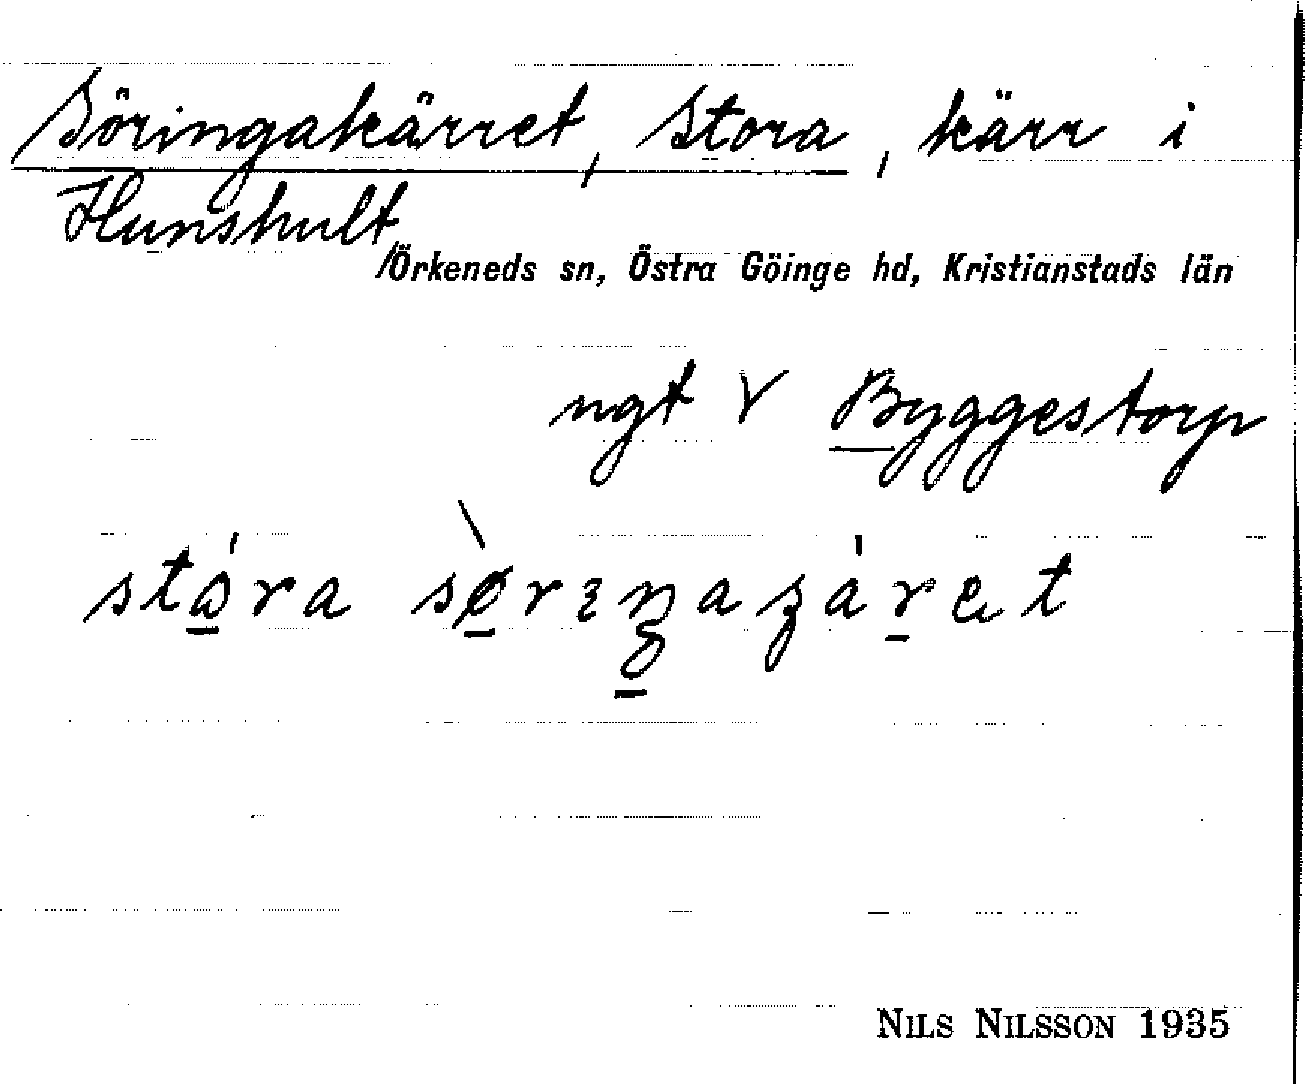 Söringakärret, Stora, kärr i
Hunshult
/Örkeneds sn, Östra Göinge hd, Kristianstads län
ngt V Byggestorp
NILS NILSSON 1935